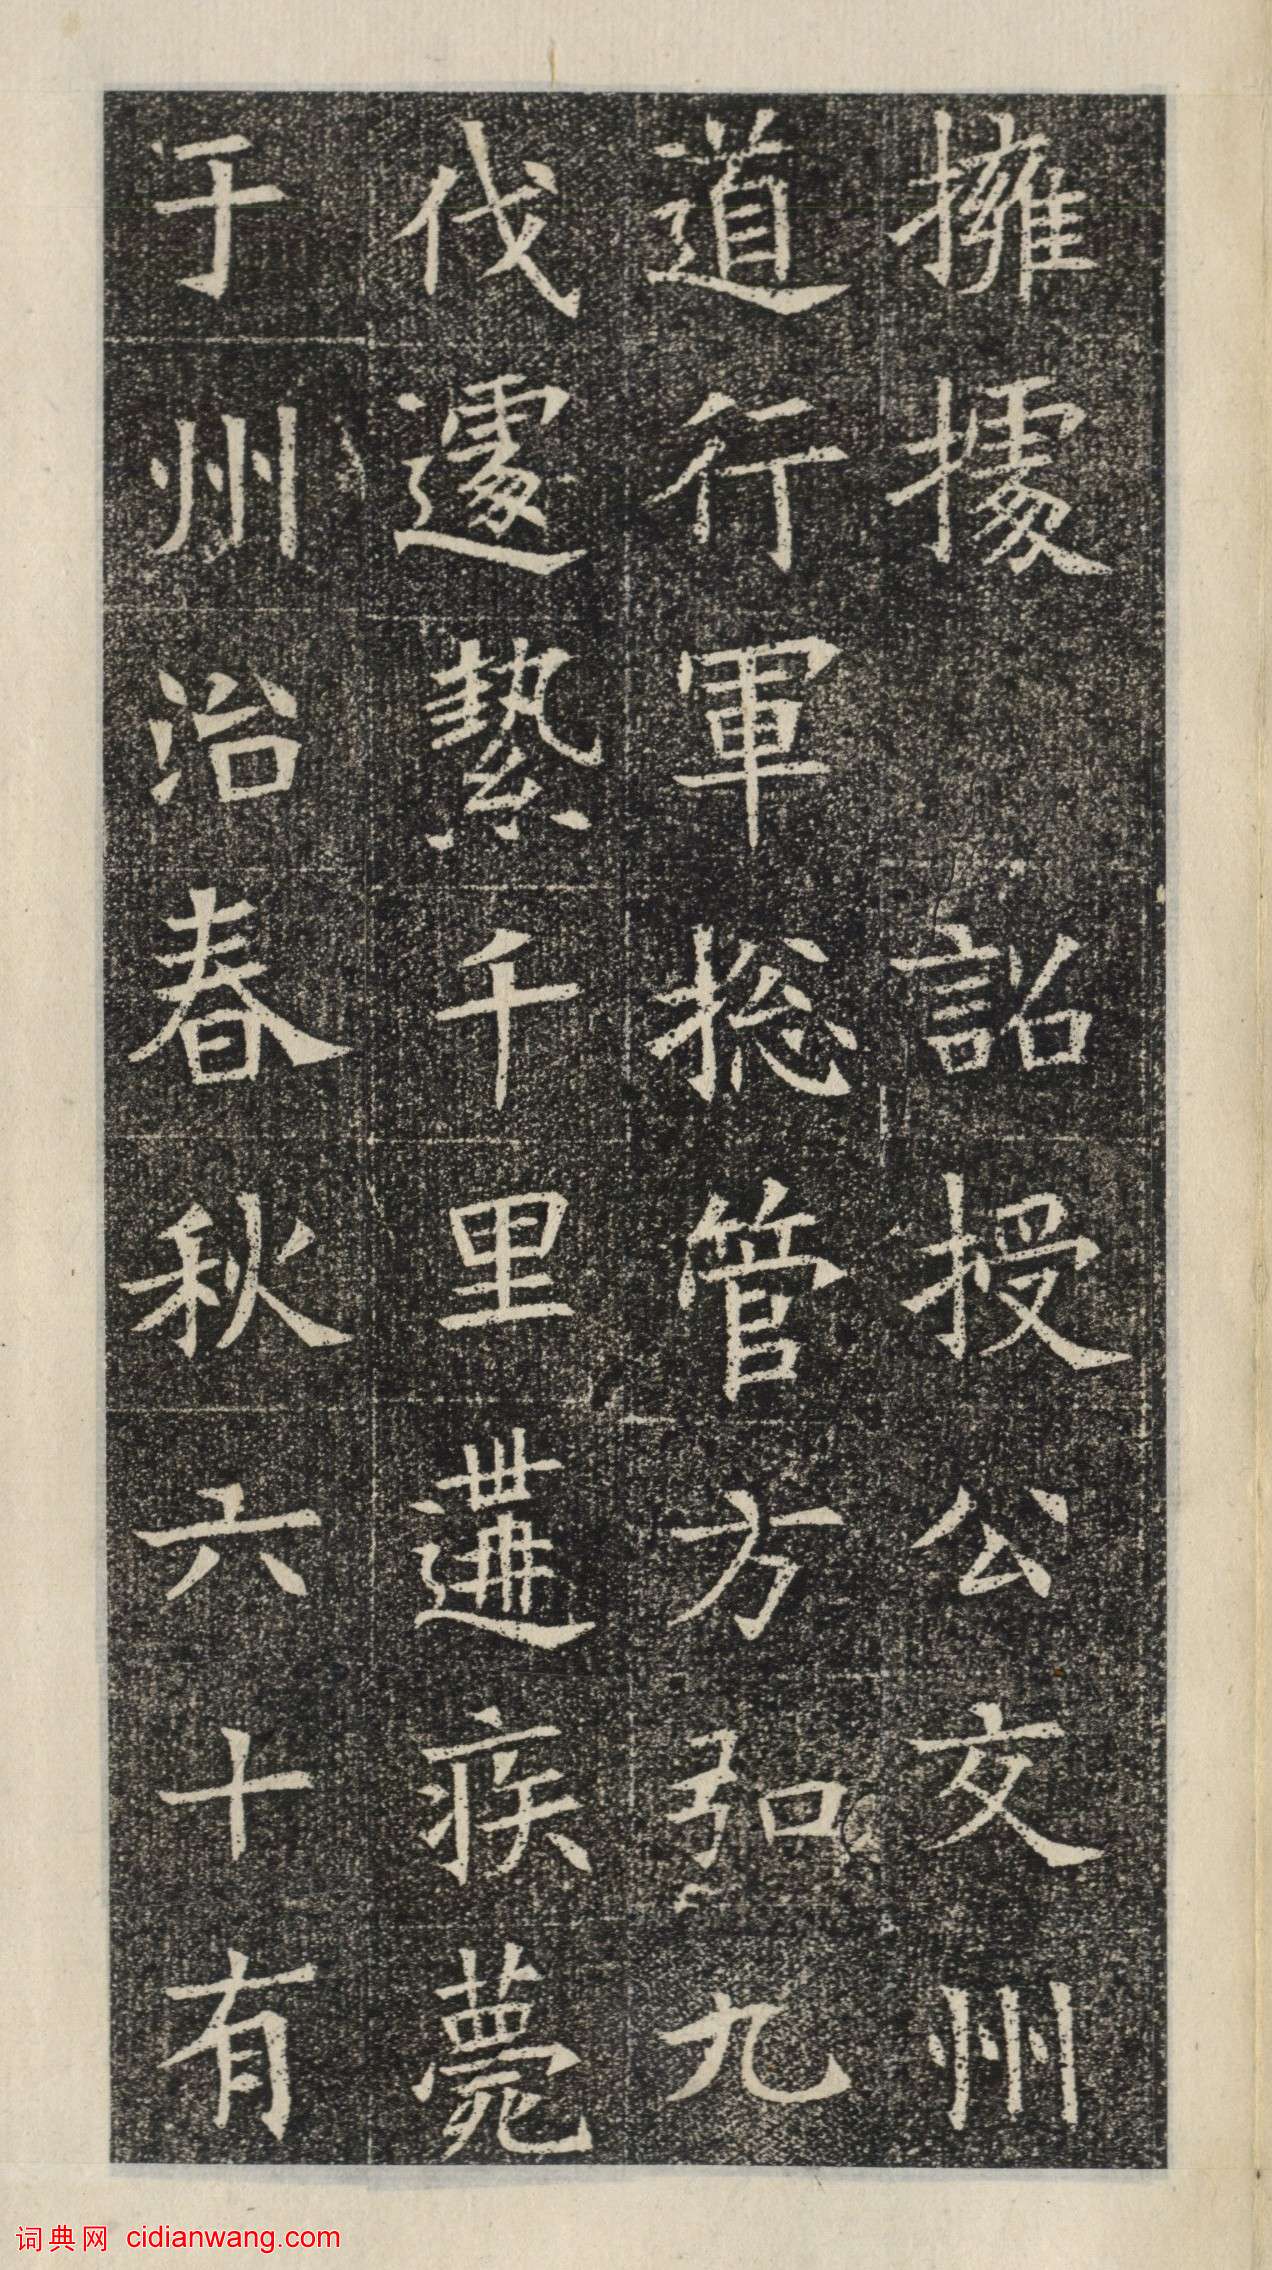 擁據 詔授公交州
道行軍揔管方弘九
伐遽縶千里遘疾薨
于州治春秋六十有
词典网 cidianwang.com